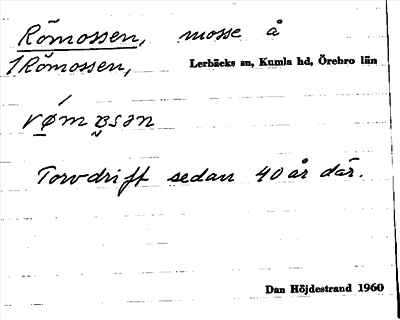 Römossen, mosse å
1Römossen, Lerbäcks sn, Kumla hd, Örebro län
Torvdrift sedan 40 år där.
Dan Höjdestrand 1960